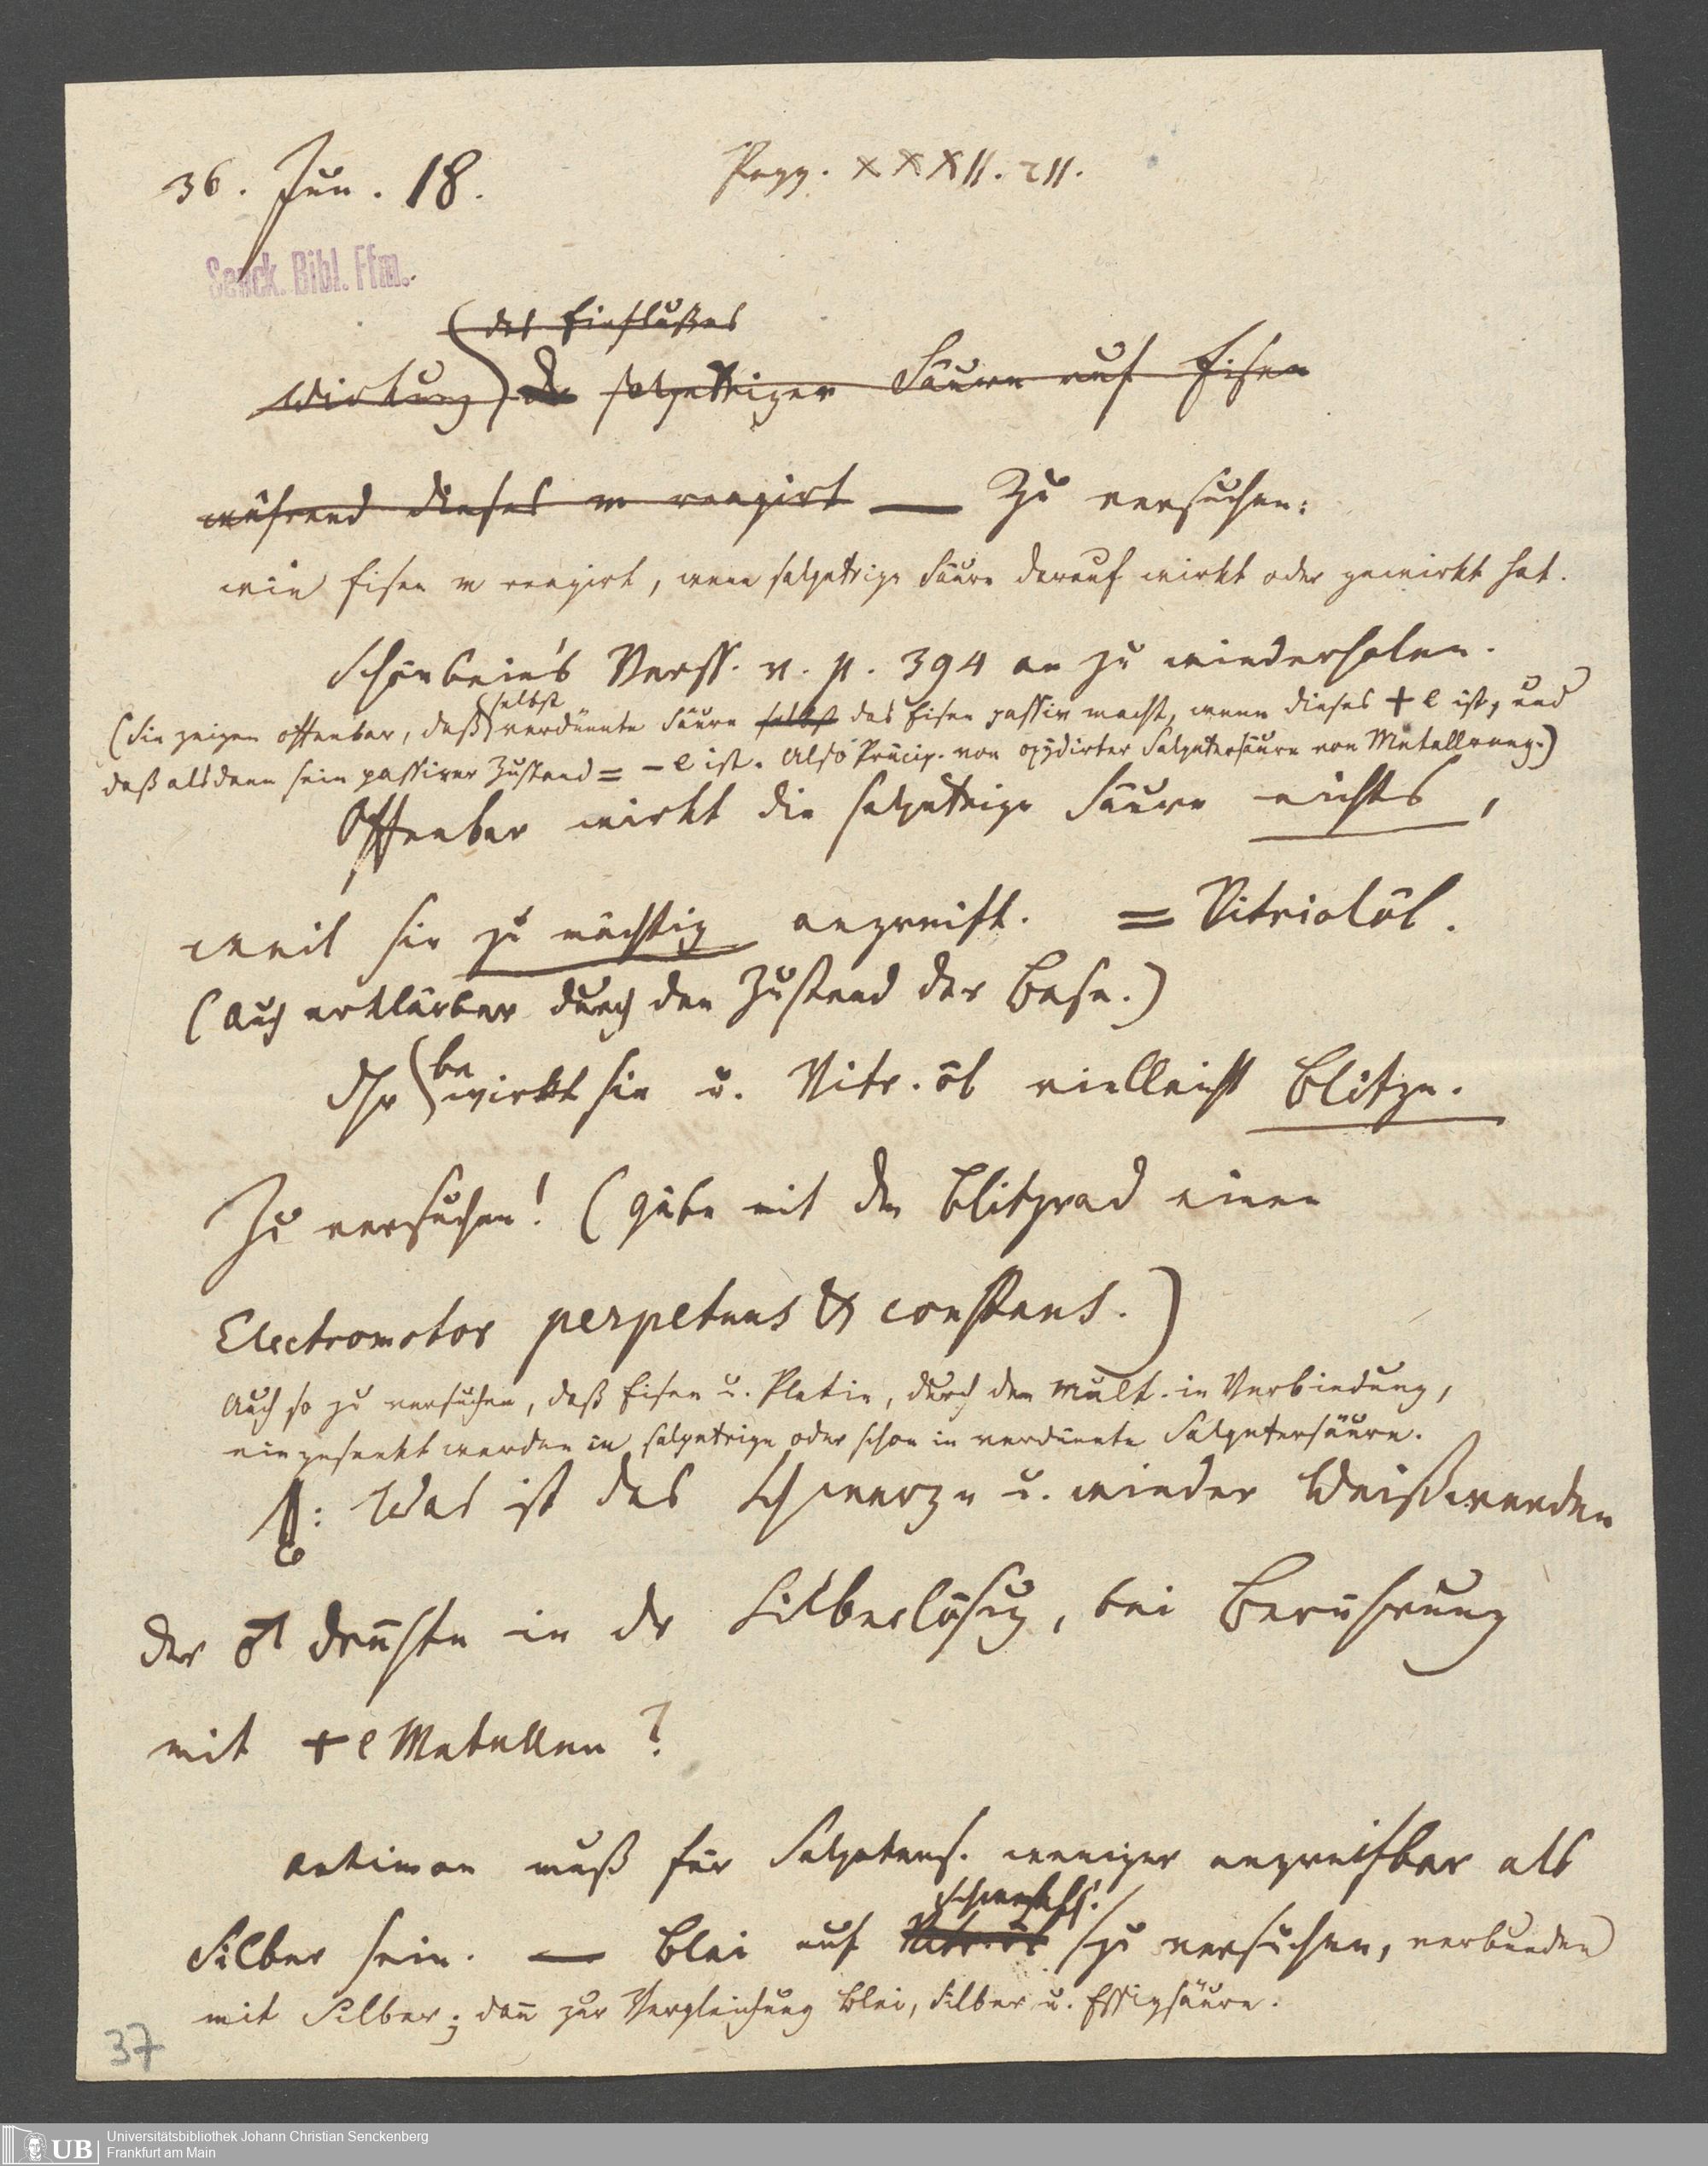 36. Jun. 18.
Pogg. XXXII. 211.
Senck. Bibl. Ffm.
des Einflußes
Wirkung der salpetriger Säure auf Eisen
während dieses m reagirt — Zu versuchen:
wie Eisen m reagirt, wenn salpetrige Säure darauf wirkt oder gewirkt hat.
Schönbein's Verss. v. p. 394 an zu wiederholen.
selbst
(Sie zeigen offenbar, daß verdünnte Säure selbst das Eisen passiv macht, wenn dieses + e ist, und
daß alsdann sein passiver Zustand = – e ist. Also Präcip. von oxydirter Salpetersäure von Metallreung.)
Offenbar wirkt die salpetrige Säure nichts,
weil sie zu mächtig angreift. = Vitriolöl.
(Auch erklärbar durch den Zustand der Base.)
be
Dhr wirkt sie u. Vitr. öl vielleicht Blitze.
Zu versuchen! (Gäbe mit dem Blitzrad einen
Electromotor perpetuus & constans.)
Auch so zu versuchen, daß Eisen u. Platin, durch den Mult. in Verbindung,
eingesenkt werden in salpetrige oder schon in verdünnte Salpetersäure.
: Was ist das Schwarze u. wieder Weißwerden
der ♂ drähte in der Silberlösung, bei Berührung
mit + e Metallen?
Antimon muß für Salpeters. weniger angreifbar als
Schwefels.
Silber sein. — Blei auf Vitriol zu versuchen, verbunden
mit Silber; dann zur Vergleichung Blei, Silber u. Essigsäure.
37
UB
Universitätsbibliothek Johann Christian Senckenberg
Frankfurt am Main